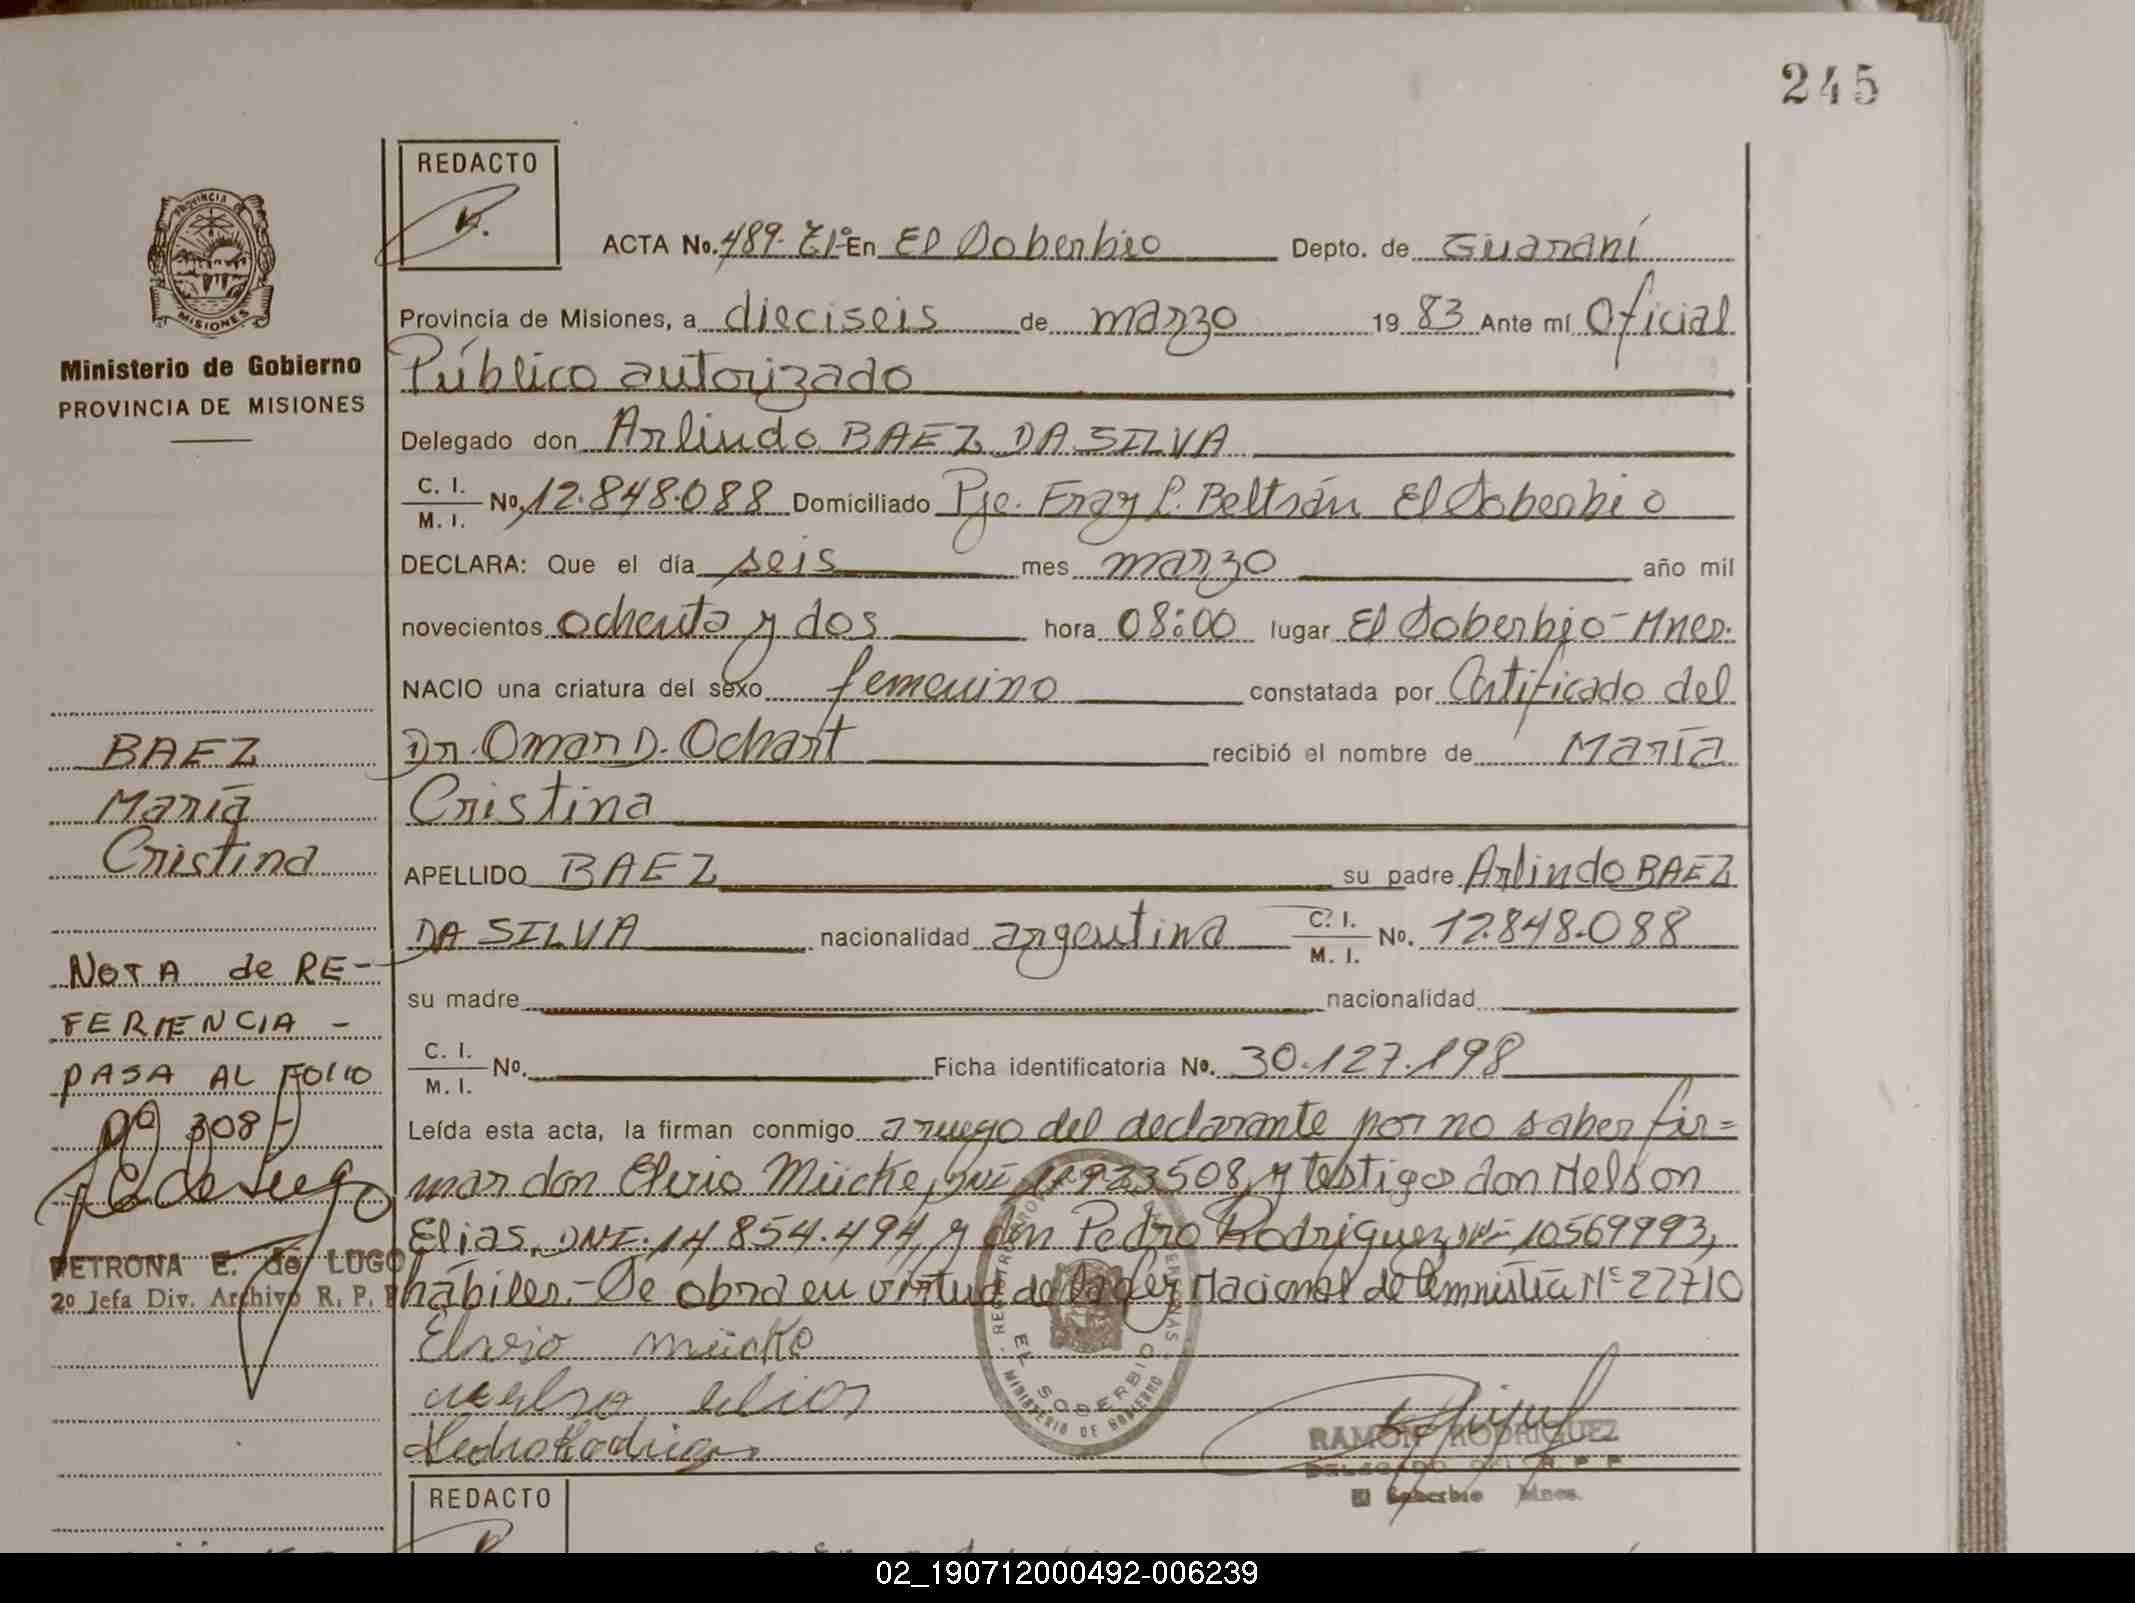 245
REDACTO
ACTA No. 489. T1º En El Soberbio Depto. de Guaraní
Provincia de Misiones, a dieciseis de marzo 19 83 Ante mí Oficial
Público autorizado
Delegado don Arlindo BAEZ DA SILVA
C. I.
M. I. No. 12.848.088 Domiciliado Pje. Fray L. Beltrán El Soberbio
DECLARA: Que el día seis mes marzo año mil
novecientos ochenta y dos hora 08:00 lugar El Soberbio - Mnes.
NACIO una criatura del sexo femenino constatada por Certificado del
Dr. Omar D. Ochart recibió el nombre de María
Cristina
APELLIDO BAEZ su padre Arlindo BAEZ
DA SILVA nacionalidad argentina C. I.
M. I. No. 12.848.088
su madre nacionalidad
C. I.
M. I. No. Ficha identificatoria No. 30.127.198
Leída esta acta, la firman conmigo a ruego del declarante por no saber fir=
mar don Elvio Mücke, DNI 11923508, y testigos don Nelson
Elias, DNI. 14 854.494, y don Pedro Rodriguez, DNI 10569993,
hábiles.- Se obra en virtud de la Ley Nacional de Amnistía Nº 22710
Elvio Mücke
Nelso Elias
Pedro Rodrigez
RAMON RODRIGUEZ
DELEGADO DEL R. P. P.
El Soberbio Mnes.
REGISTRO PROVINCIAL PERSONAS
EL SOBERBIO
MINISTERIO DE GOBIERNO
PROVINCIA DE
MISIONES
Ministerio de Gobierno
PROVINCIA DE MISIONES
BAEZ
María
Cristina
NOTA de RE-
FERIENCIA -
PASA AL FOLIO
Nº 308-
PETRONA E. de LUGO
2º Jefa Div. Archivo R. P. P.
REDACTO
02_190712000492-006239